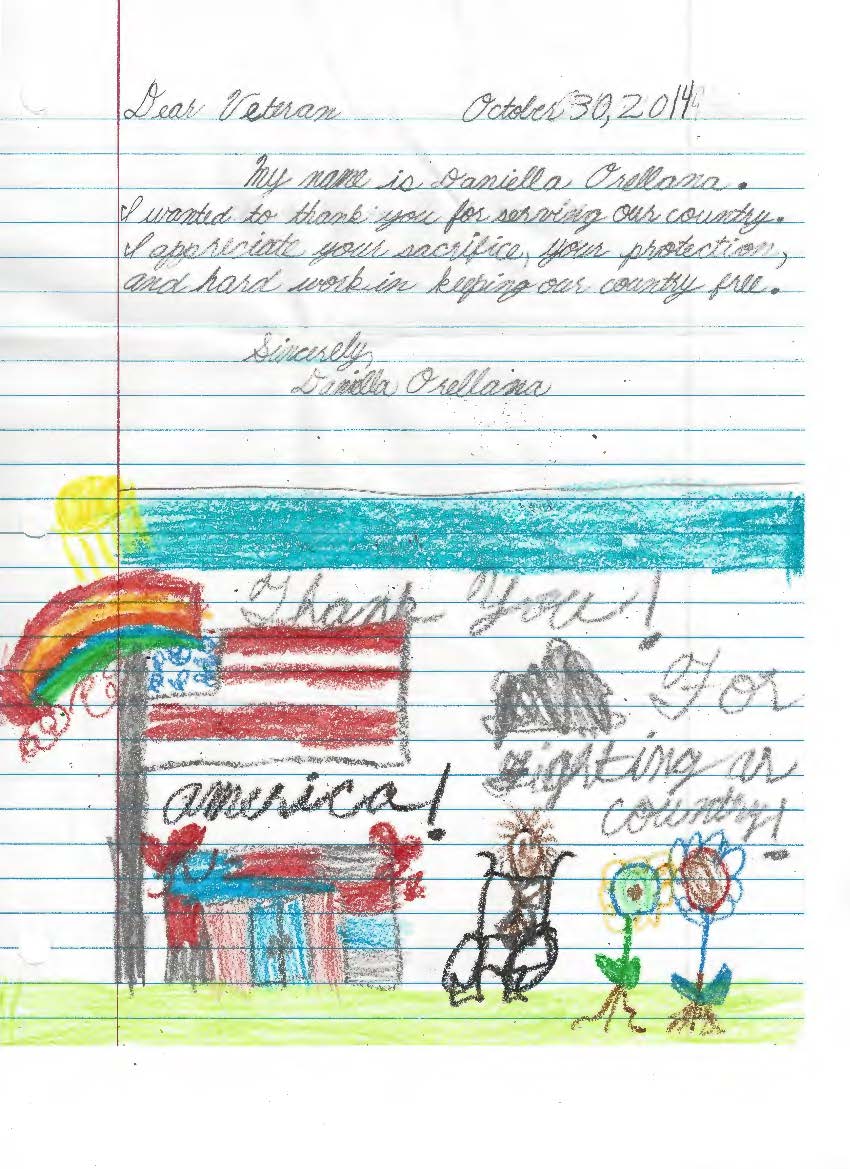 Dear Veteran October 30, 2014
My name is Daniella Orellana.
I wanted to thank you for serving our country.
I appreciate your sacrifice, your protection,
and hard work in keeping our country free.
Sincerely,
Daniella Orellana
Thank You!
For
Fighting ur
country!
america!